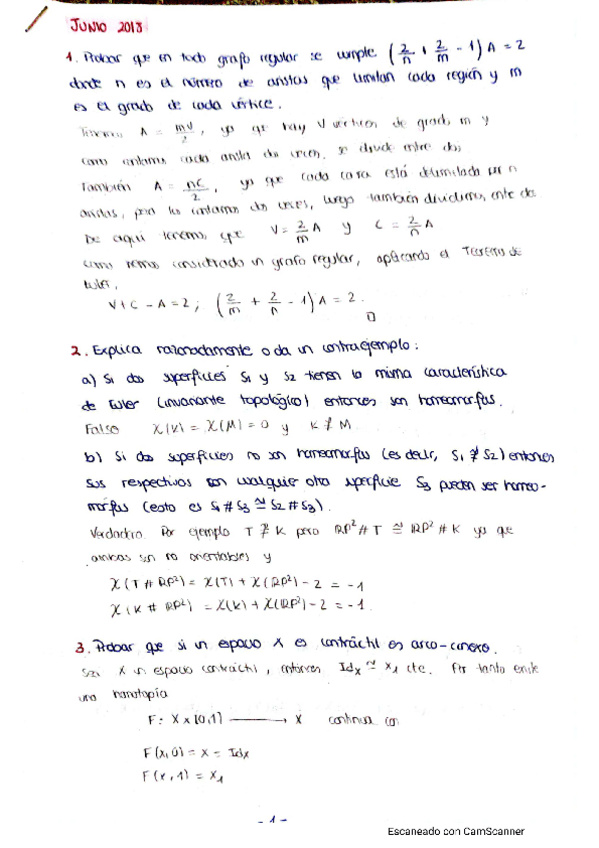 JUNIO 2018
1. Probar que en todo grafo regular se cumple (2/n + 2/m - 1) A = 2
donde n es el número de aristas que limitan cada región y m
es el grado de cada vértice.
Tenemos A = mV/2, ya que hay V vértices de grado m y
como contamos cada arista dos veces, se divide entre dos
También A = nC/2, ya que cada cara está delimitada por n
aristas, pero las contamos dos veces, luego también dividimos entre dos
De aquí tenemos que V = 2/m A y C = 2/n A
como hemos considerado un grafo regular, aplicando el Teorema de
Euler,
V + C - A = 2; (2/m + 2/n - 1) A = 2.
□
2. Explica razonadamente o da un contraejemplo:
a) Si dos superficies S1 y S2 tienen la misma característica
de Euler (invariante topológico) entonces son homeomorfas.
Falso χ(K) = χ(M) = 0 y K ≇ M
b) Si dos superficies no son homeomorfas (es decir, S1 ≇ S2) entonces
sus respectivos con cualquier otra superficie S3 pueden ser homeo-
morfas (esto es S1 # S3 ≅ S2 # S3).
Verdadero. Por ejemplo T ≇ K pero RP² # T ≅ RP² # K ya que
ambas son no orientables y
χ(T # RP²) = χ(T) + χ(RP²) - 2 = -1
χ(K # RP²) = χ(K) + χ(RP²) - 2 = -1.
3. Probar que si un espacio X es contráctil es arco-conexo.
Sea X un espacio contráctil, entonces Idx ≃ x1 cte. Por tanto existe
una homotopía
F: X x [0,1] ⟶ X continua con
F(x,0) = x = Idx
F(x,1) = x1
- 1 -
Escaneado con CamScanner